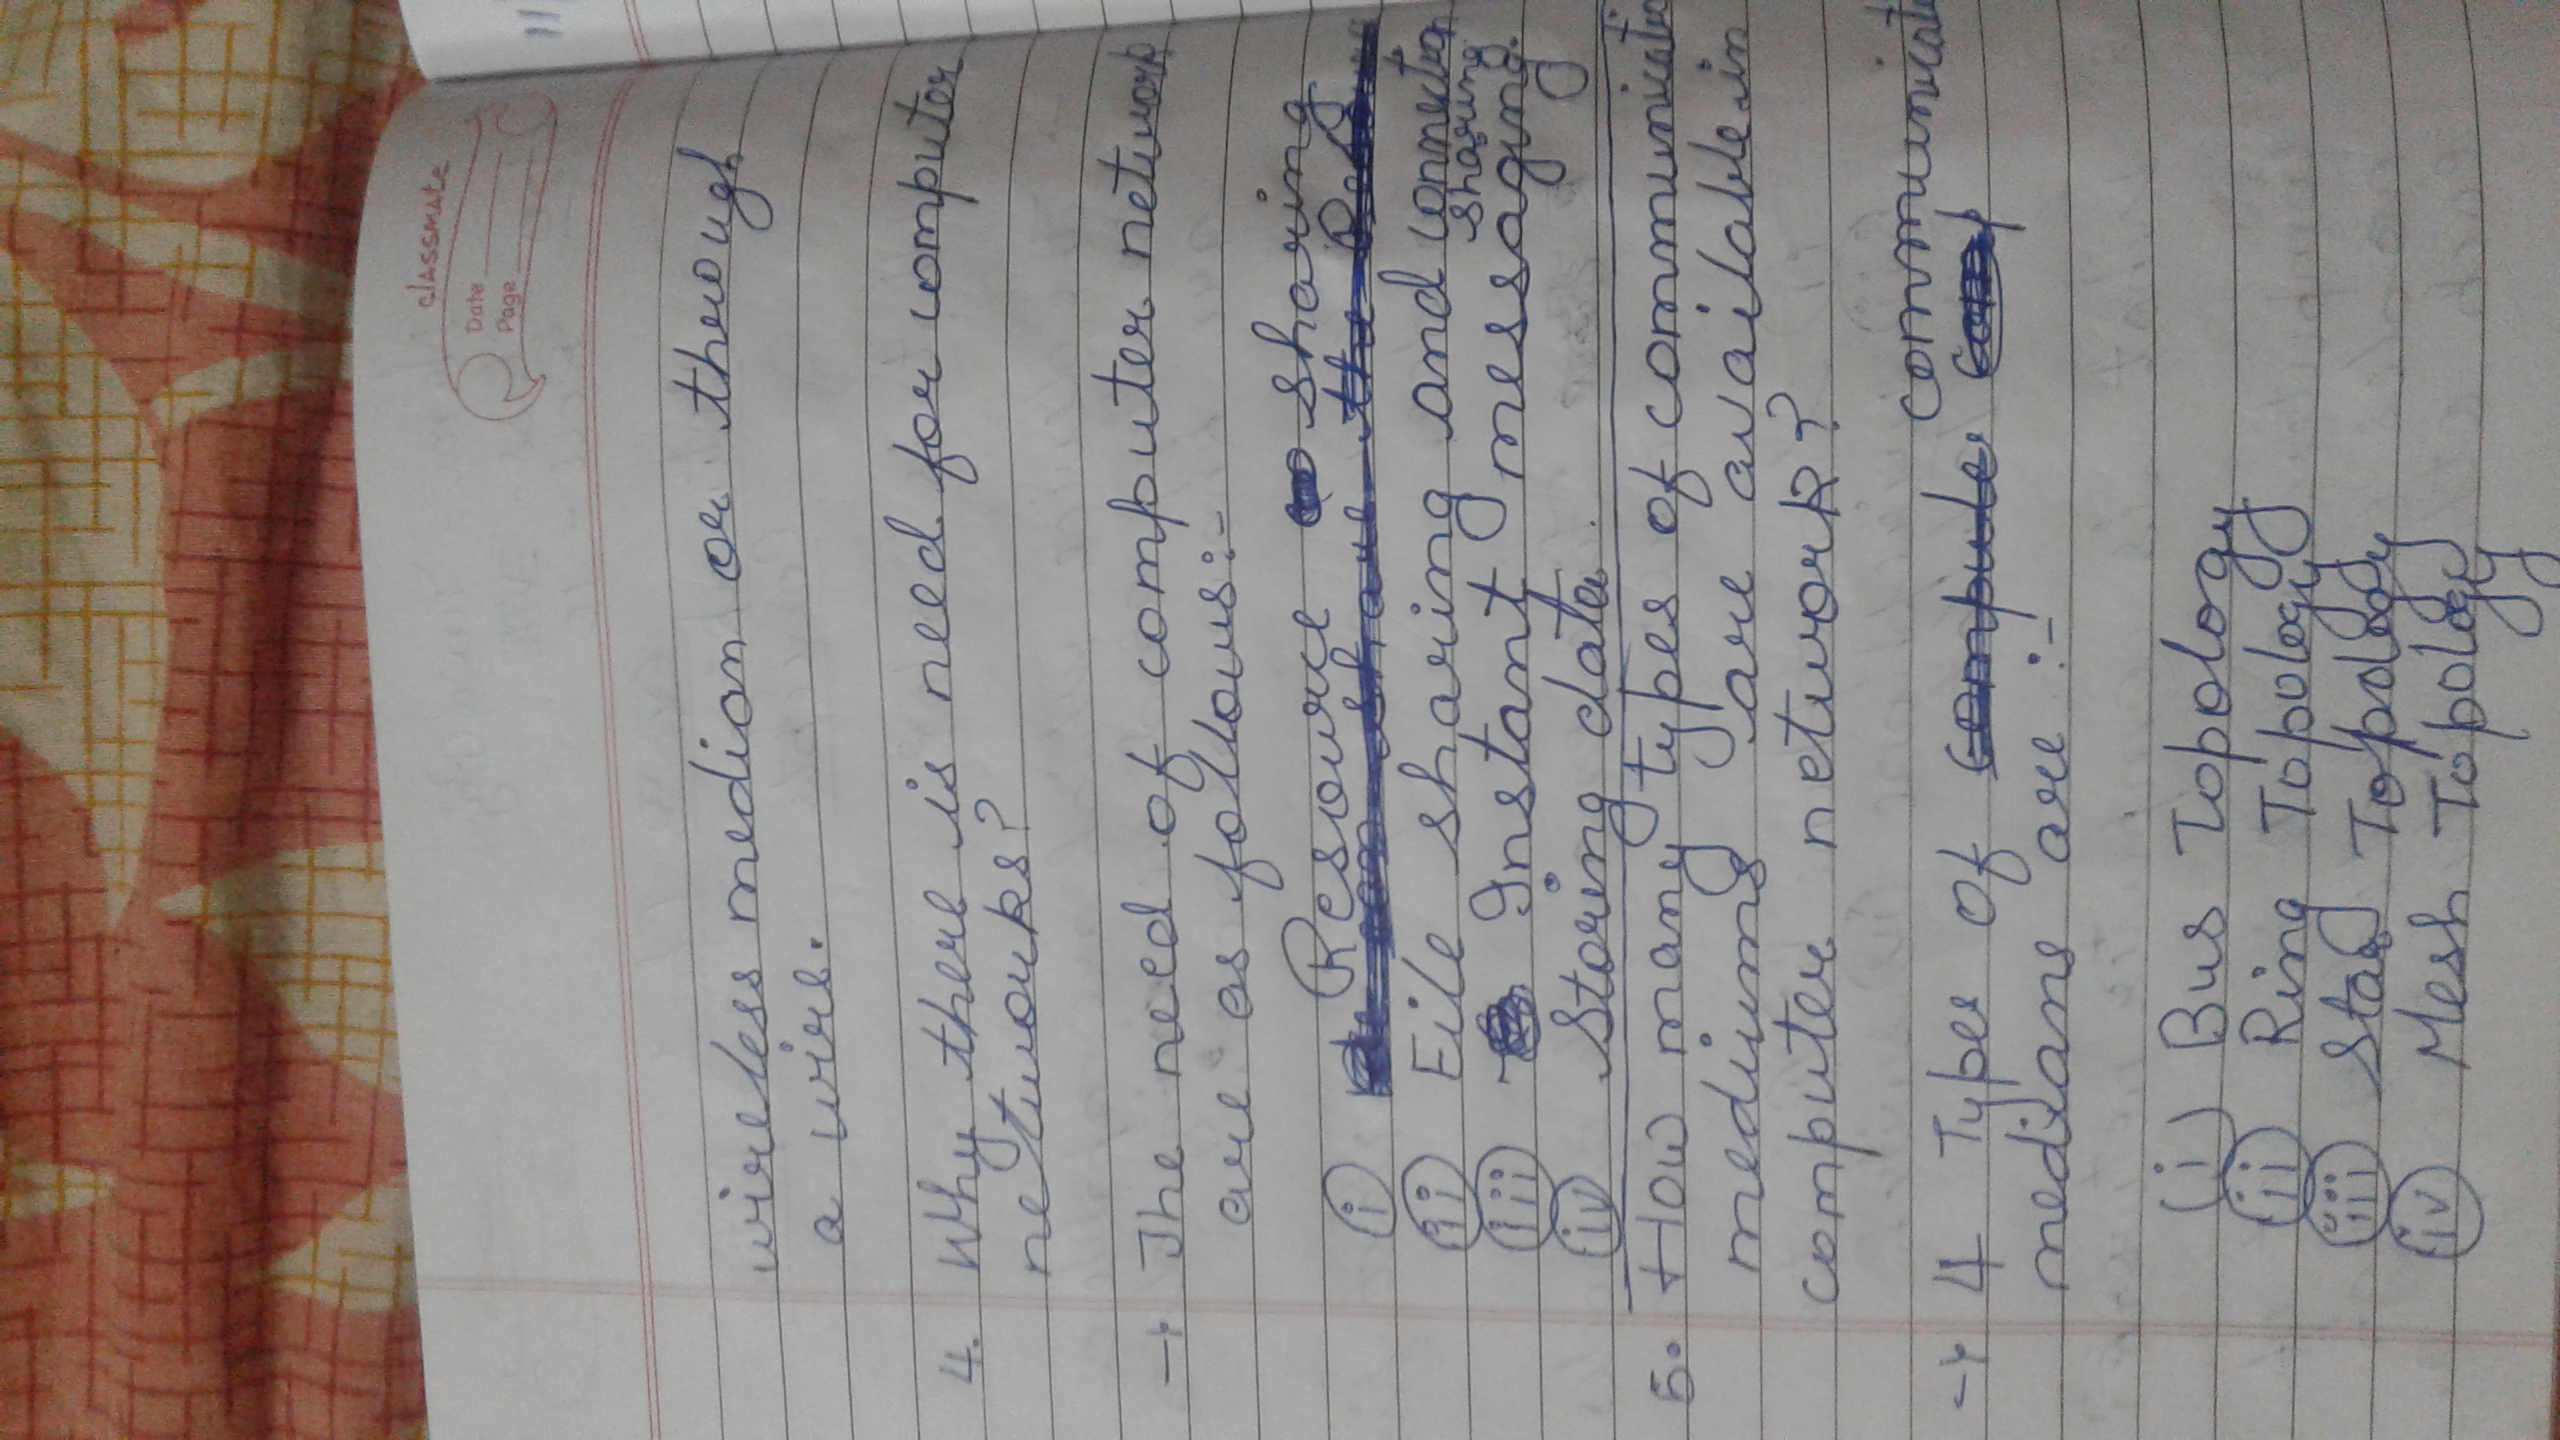 classmate
Date
Page
wireless median or through
a wire.
4. Why there is need for computer
networks?
→ The need of computer network
are as follows:-
Resource sharing
(i) can share the
(ii) File sharing and connection
sharing
(iii) Instant messaging.
(iv) Storing data.
5. How many types of communicatio
mediums are available in
computer network?
communicati
→ 4 Types of compute comp
medians are :-
(i) Bus Topology
(ii) Ring Topology
(iii) Star Topology
(iv) Mesh Topology